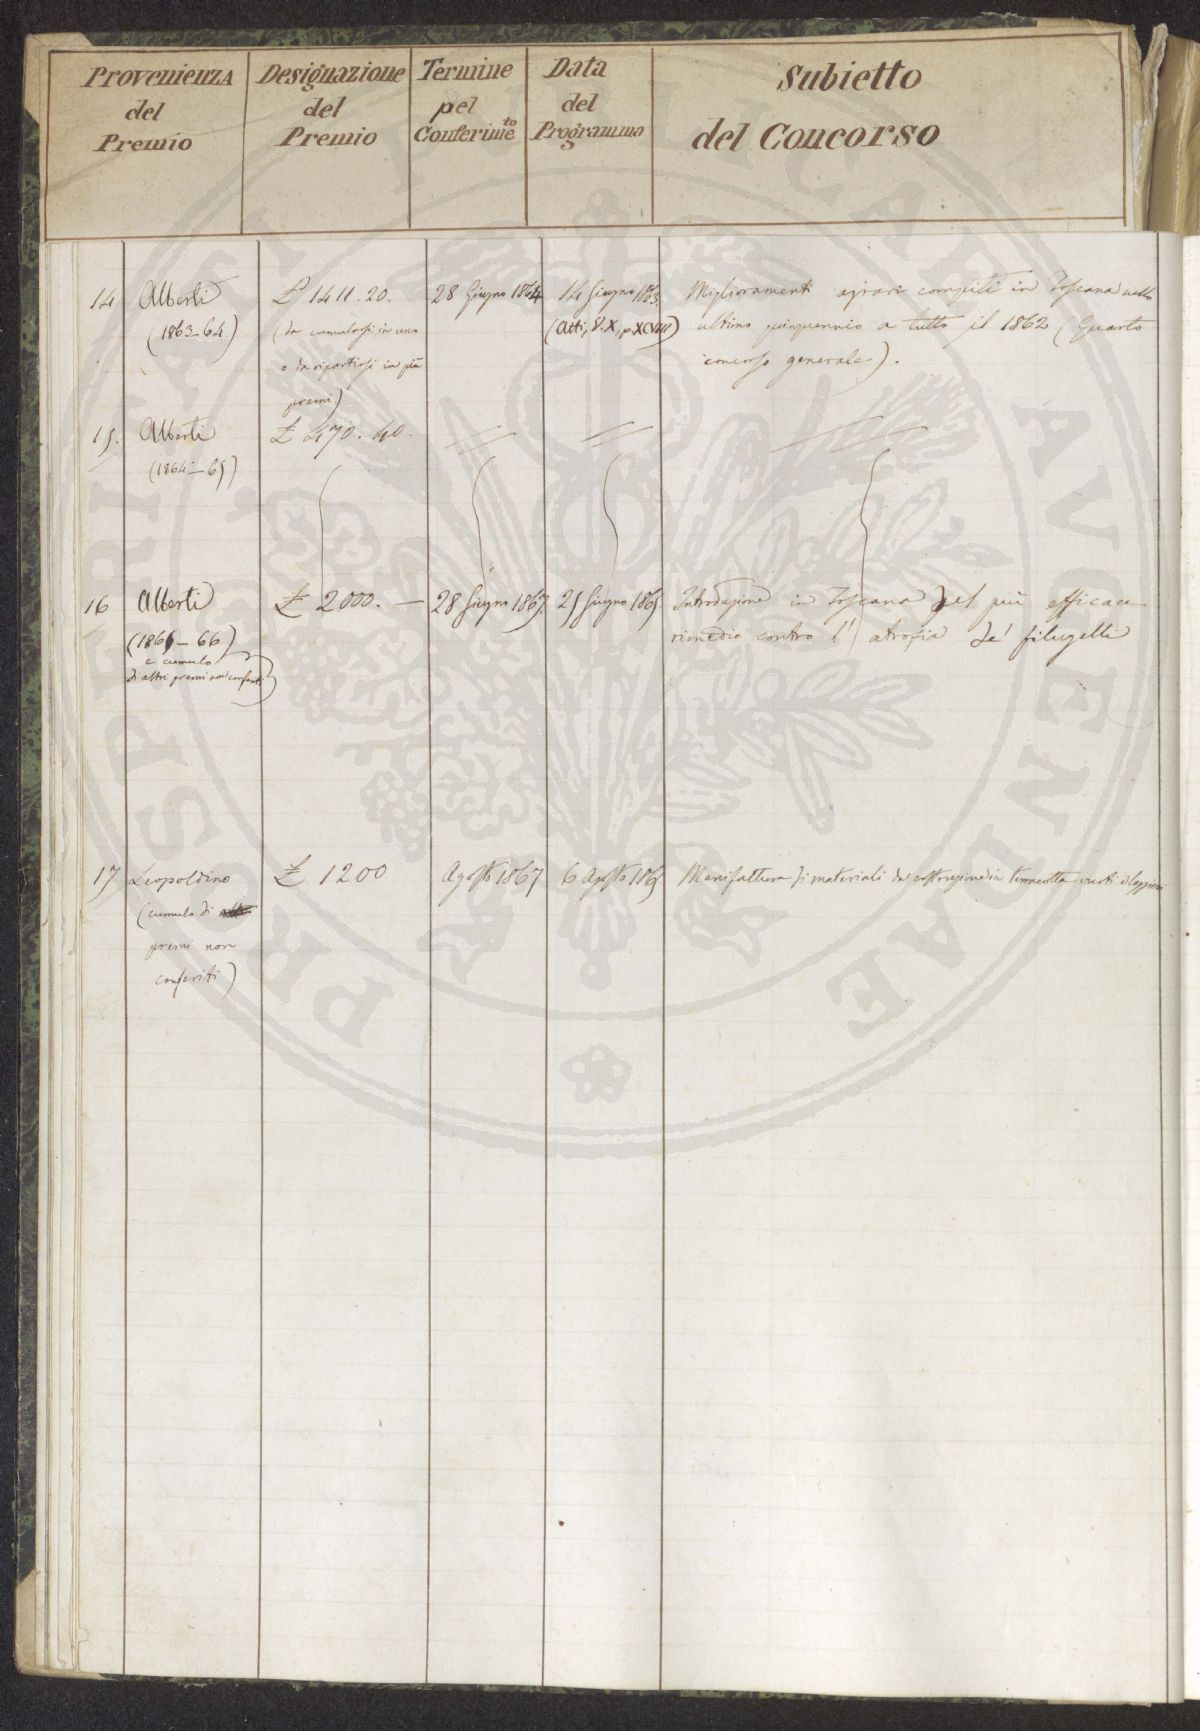 Provenienza del Premio
Designazione del Premio
Termine pel Conferimto
Data del Programma
Subietto del Concorso
14 Alberti £ 1411.20. 28 Giugno 1864 14 Giugno 1863 Miglioramenti agrari compiti in Toscana nello
(1863-64) (da cumularsi in uno (Atti, V. X, p XCVIII) ultimo quinquennio a tutto il 1862 (Quarto
o da ripartirsi in più concorso generale).
premi)
15. Alberti £ 470.40.
(1864-65)
16 Alberti £ 2000. — 28 Giugno 1867. 25 Giugno 1865. Introduzione in Toscana del più efficace
(1865-66) rimedio contro l'atrofia de' filugelli
e cumulo
di altri premi non conferiti)
17 Leopoldino £ 1200 Agosto 1867 6 Agosto 1865 Manifattura di materiali da costruzione in terracotta vuoti e leggieri
(cumulo di
premi non
conferiti)
PROSPERITATI PUBLICAE AVGENDAE